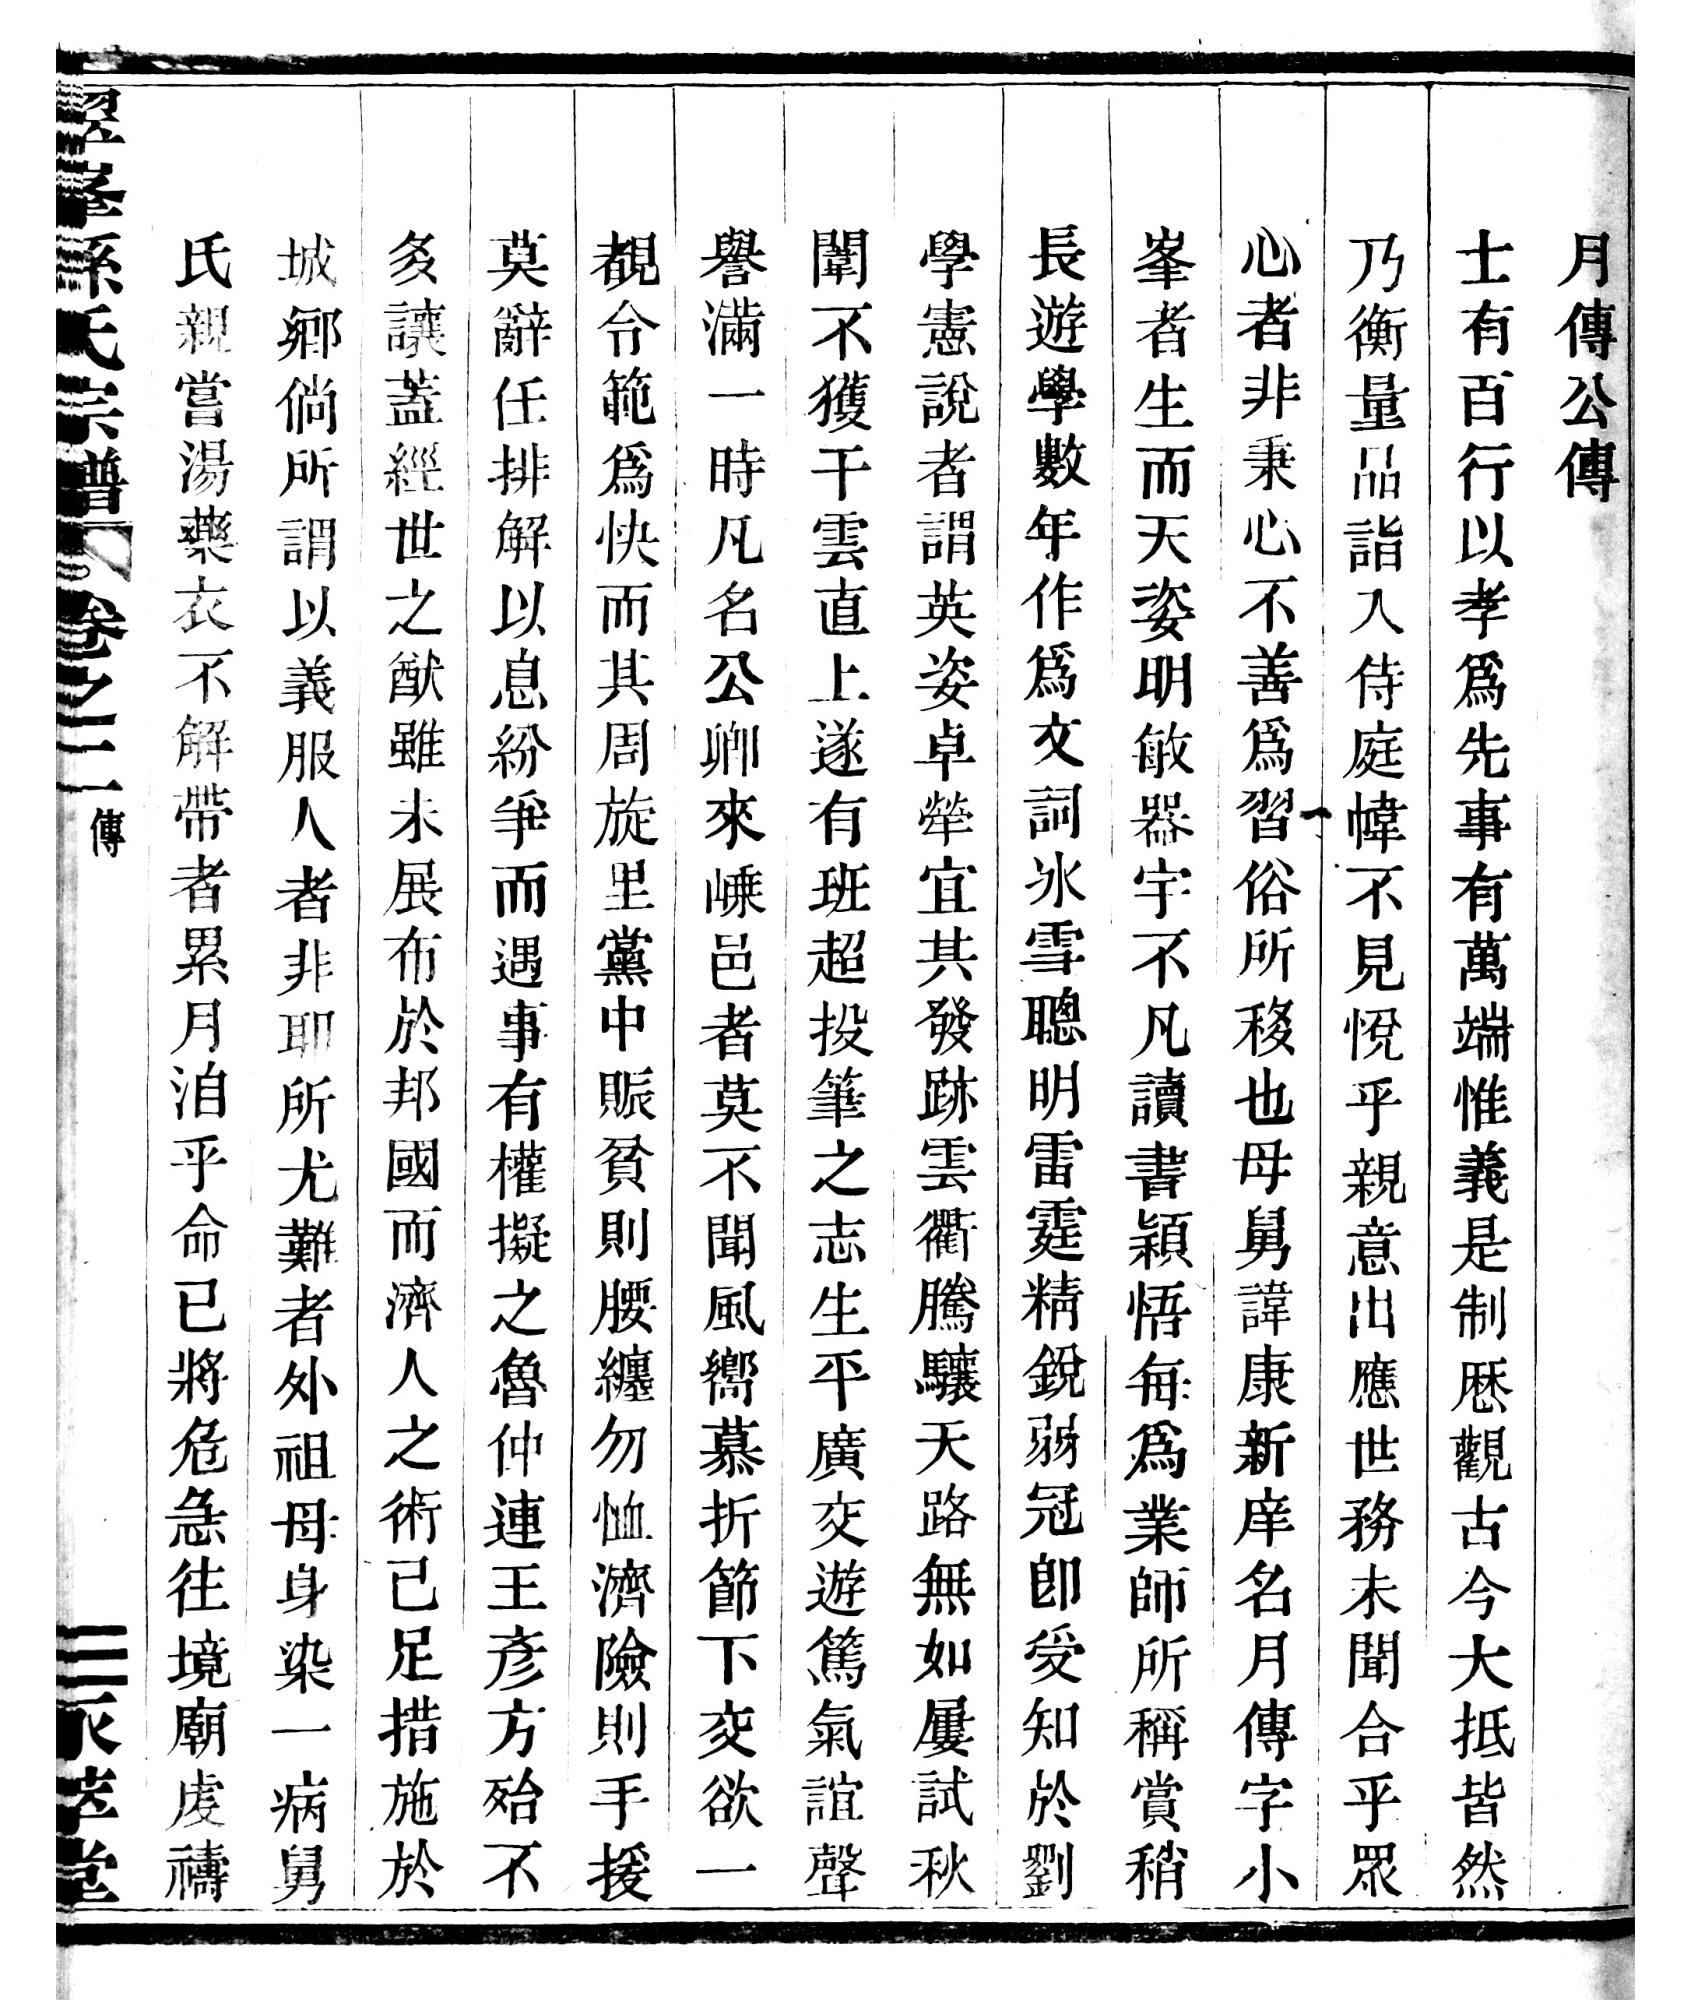 月傳公傳
士有百行以孝爲先事有萬端惟義是制歷觀古今大抵皆然
乃衡量品詣入侍庭幃不見悅乎親意出應世務未聞合乎眾
心者非秉心不善爲習俗所移也母舅諱康新庠名月傳字小
峯者生而天姿明敏器宇不凡讀書穎悟每爲業師所稱賞稍
長遊學數年作爲文詞氷雪聰明雷霆精銳弱冠卽受知於劉
學憲說者謂英姿卓犖宜其發跡雲衢騰驤天路無如屢試秋
闈不獲干雲直上遂有班超投筆之志生平廣交遊篤氣誼聲
譽滿一時凡名公卿來嵊邑者莫不聞風嚮慕折節下交欲一
覩令範爲快而其周旋里黨中賑貧則腰纏勿恤濟險則手援
莫辭任排解以息紛爭而遇事有權擬之魯仲連王彥方殆不
多讓蓋經世之猷雖未展布於邦國而濟人之術已足措施於
城鄉倘所謂以義服人者非耶所尤難者外祖母身染一病舅
氏親嘗湯藥衣不解帶者累月洎乎命已將危急往境廟虔禱
翠峯孫氏宗譜 卷之二 傳 三 永萃堂